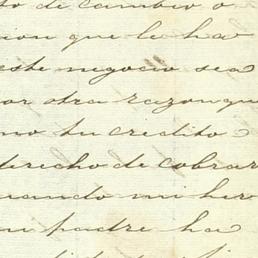 to de cambio o
ion que le ha
este negocio sea
or otra razon que
no tu credito
derecho de cobrar
uando mi her
u padre ha